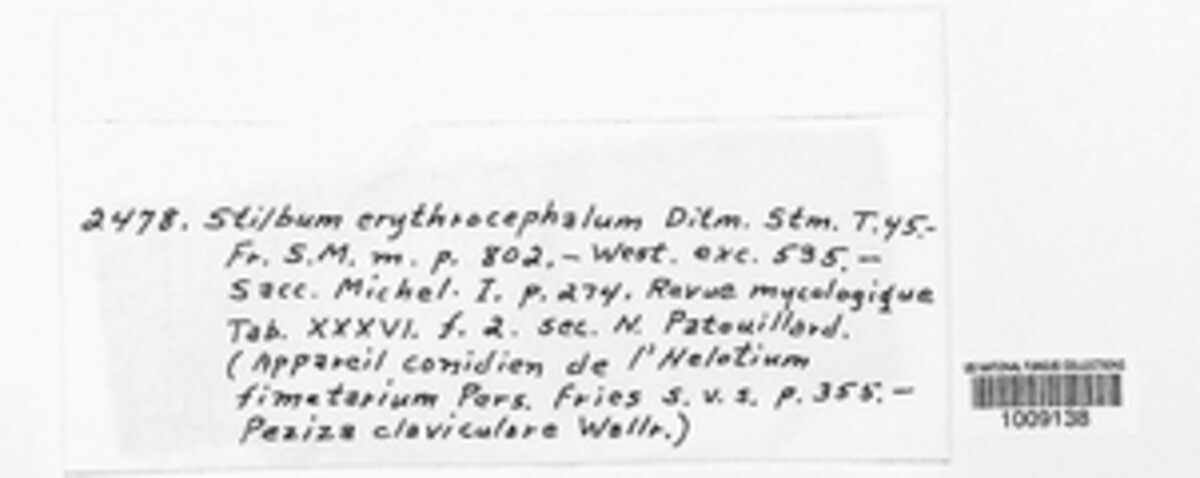 2478. Stilbum erythrocephalum Ditm. Stm. T.45.-
Fr. S.M. m. p. 802. - West. exc. 595. -
Sacc. Michel. I. p. 274. Revue mycologique
Tab. XXXVI. f. 2. sec. N. Patouillard.
(Appareil conidien de l'Helotium
fimetarium Pers. Fries s. v. s. p. 355. -
Peziza claviculare Wallr.)
US NATIONAL FUNGUS COLLECTIONS
1009138